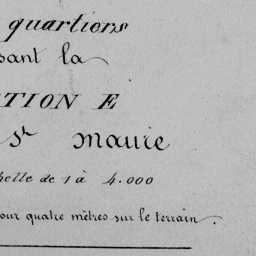 quartiers
sant la
TION E
St Maurice
helle de 1 à 4.000
our quatre mètres sur le terrain.